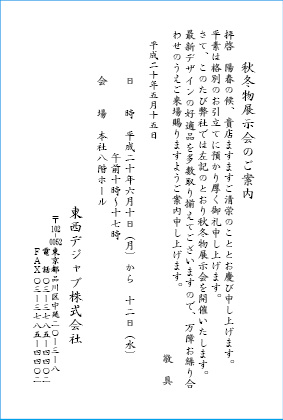 秋冬物展示会のご案内
拝啓　陽春の候、貴店ますますご清栄のこととお慶び申し上げます。
平素は格別のお引立てに預かり厚く御礼申し上げます。
さて、このたび弊社では左記のとおり秋冬物展示会を開催いたします。
最新デザインの好適品を多数取り揃えてございますので、万障お繰り合
わせのうえご来場賜りますようご案内申し上げます。
敬具
平成二十年五月十五日
日　時　平成二十年六月十日（月）から　十二日（水）
午前十時～十七時
会　場　本社八階ホール
東西デジャブ株式会社
〒102-0062 東京都品川区中延二〇ー三ー八
電話〇三ー三七八五ー四四〇二
ＦＡＸ〇三ー三七八五ー四四〇二